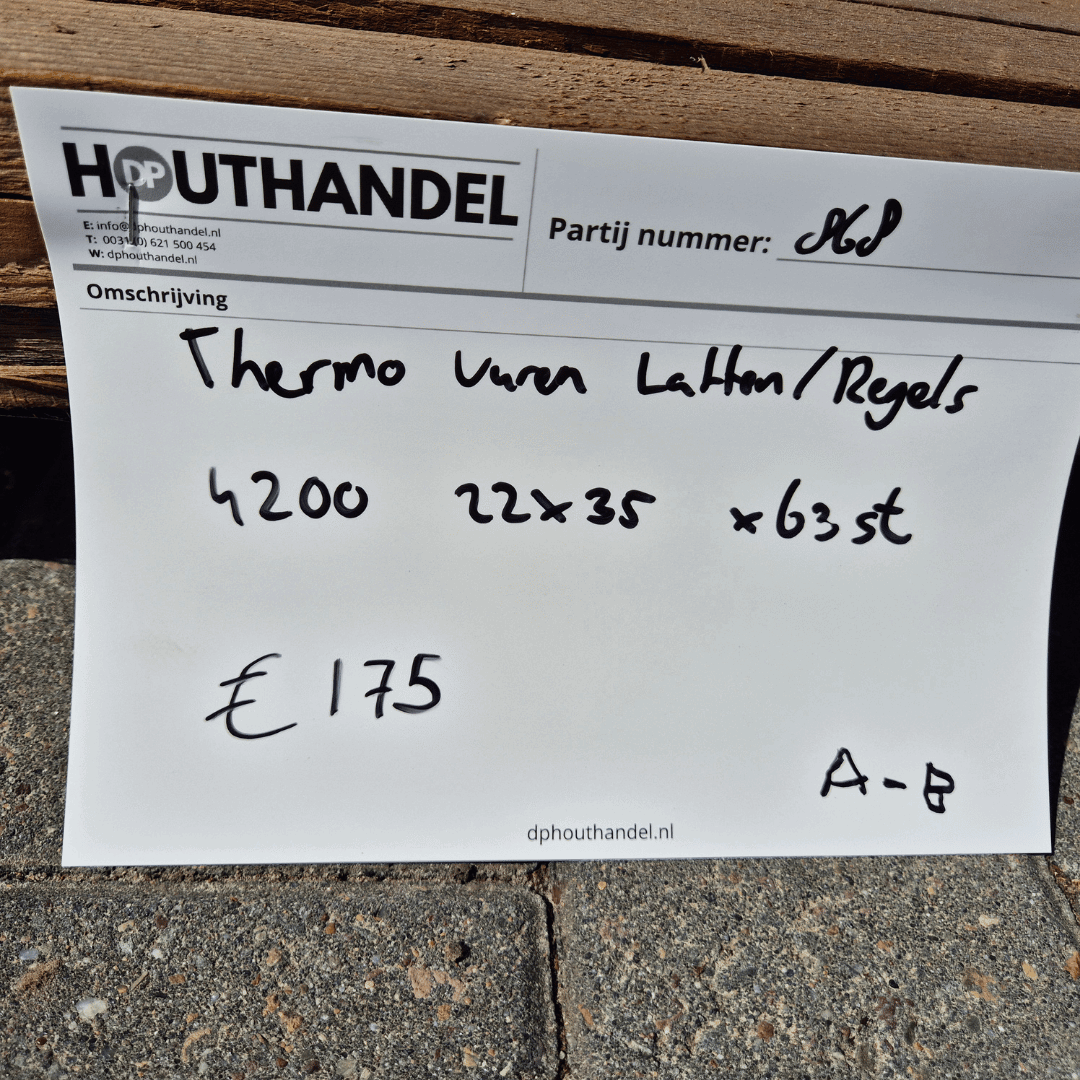 HOUTHANDEL
DP
E: info@dphouthandel.nl
T: 0031(0) 621 500 454
W: dphouthandel.nl
Partij nummer:
Omschrijving
Thermo Vuren Latten/Regels
4200 22x35 x63 st
€ 175
A-B
dphouthandel.nl